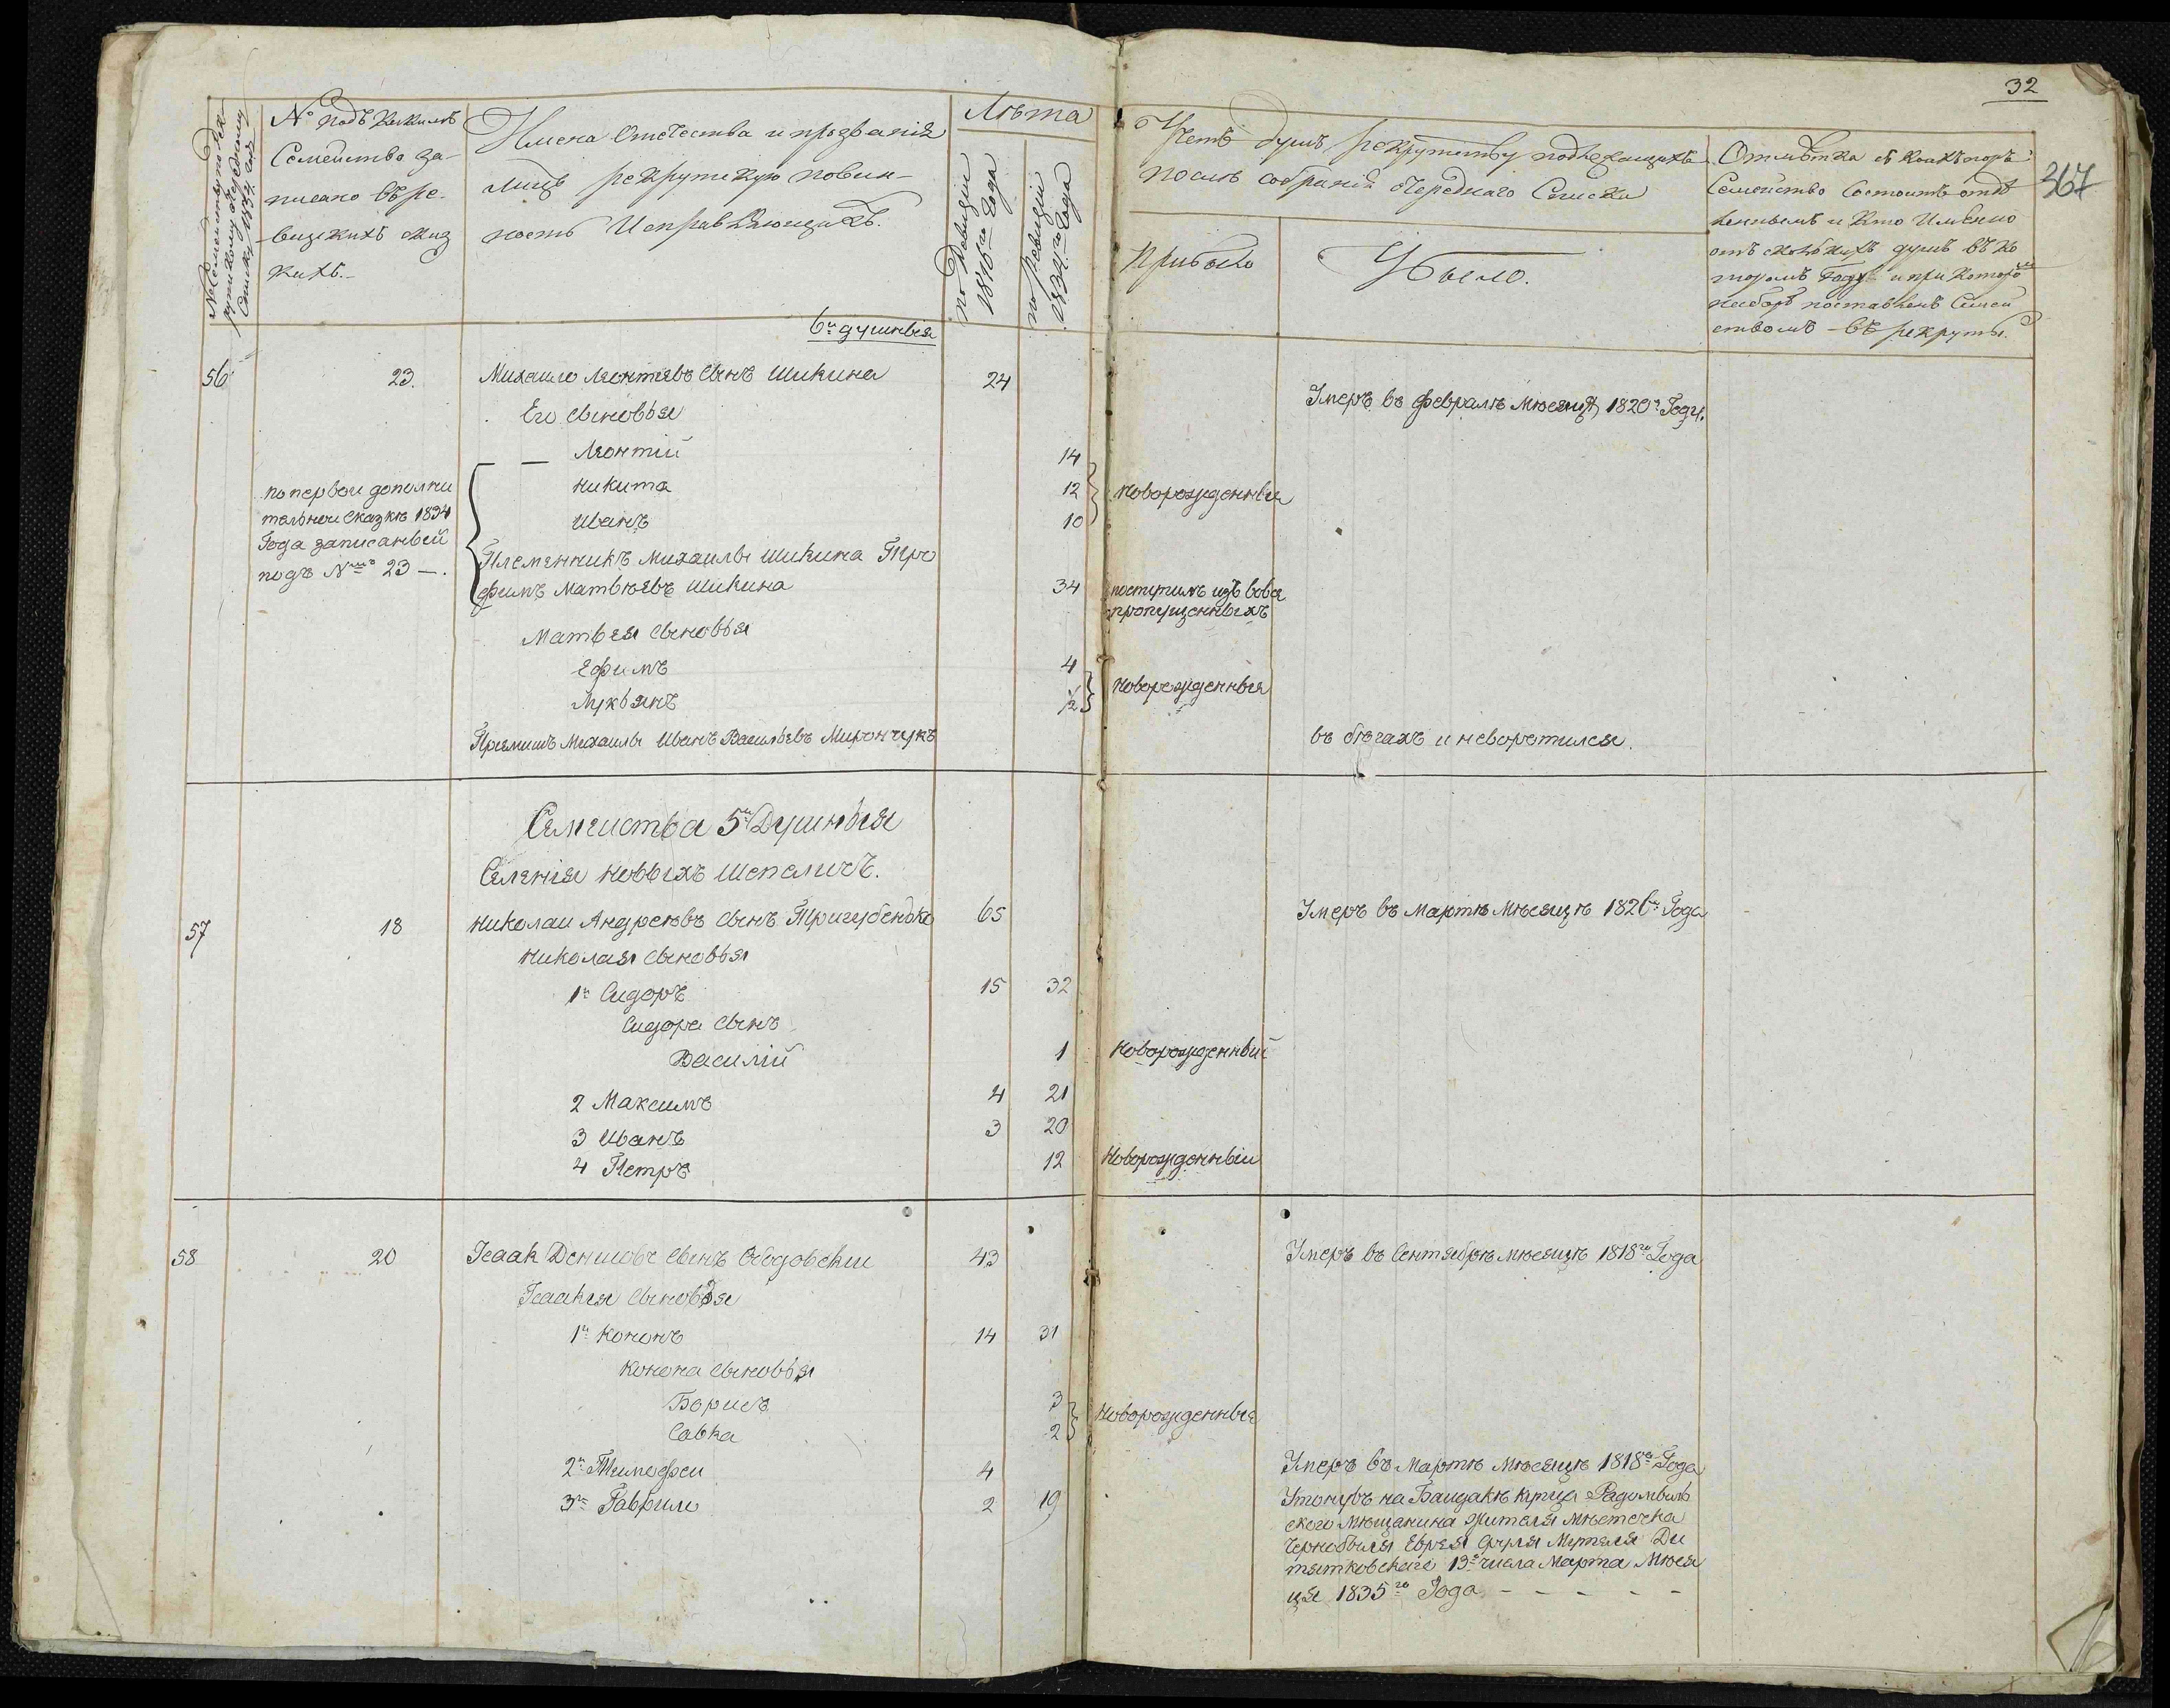 32
367
№ Семейства по рек
рутскому очередному
списку 1834 год
№ подъ какимъ
Семейство за-
писано въ ре-
визскихъ сказ
кахъ.
Имена Отечества и прозванія
лицъ рекрутскую повин-
ность Исправляющихъ.
Лѣта
по ревизіи
1816го Года
по ревизіи
1834го Года
Учетъ душъ, рекрутству подлежащихъ
послѣ собранія очереднаго Списка
Прибыло
Убыло.
Отмѣтка съ коихъ поръ
Семейство Состоитъ отдѣ
леннымъ и Кто Именно
отъ сколькихъ душъ въ ко
торомъ Году и при которо
наборѣ поставленъ Семей
ствомъ въ рекруты.
6и душныя
56 23. Михайло Леонтіевъ Сынъ Шикина 24 Умеръ въ февралѣ Мѣсяцѣ 1820го Году.
Его Сыновья
Леонтій 14
Никита 12 новорожденныи
Иванъ 10
по первои дополни
тельнои Сказкѣ 1834
Года записаныи
подъ №мъ 23 —.
Племянникъ Михаилы Шикина Тро
фимъ Матвѣевъ Шикина 34 поступилъ изъ вовся
пропущенныхъ
Матвея Сыновья
Ефимъ 4
Лукьянъ 1/2 Новорожденныя
Пріемишъ Михаилы Иванъ Васильевъ Мирончукъ въ бѣгахъ и неворотился.
Семеиства 5и Душныя
Селенія Новыхъ Шепеличъ.
57 18 Николаи Андреѣвъ Сынъ Тригубенько 65 Умеръ въ Мартѣ Мѣсяцѣ 1826го Года
Николая Сыновья
1й Сидоръ 15 32
Сидора Сынъ
Василій 1 Новорожденный
2 Максимъ 4 21
3 Иванъ 3 20
4 Петръ 12 Новорожденныи
58 20 Ісаак Денисовъ Сынъ Ободовскіи 43 Умеръ въ Сентябрѣ мѣсяцѣ 1818го Года
Ісаакія Сыновья
1й Кононъ 14 31
Конона Сыновья
Борисъ 3
Савка 2 Новорожденныя
2й Тимофеи 4 Умеръ въ Мартѣ Мѣсяцѣ 1818го Года
3й Гаврило 2 19 Утонувъ на Баидакѣ купца Радомысль
ского Мѣщанина Жителя Мѣстечка
Чернобыля Еврея
13го числа Марта Мѣся
ця 1835го Года